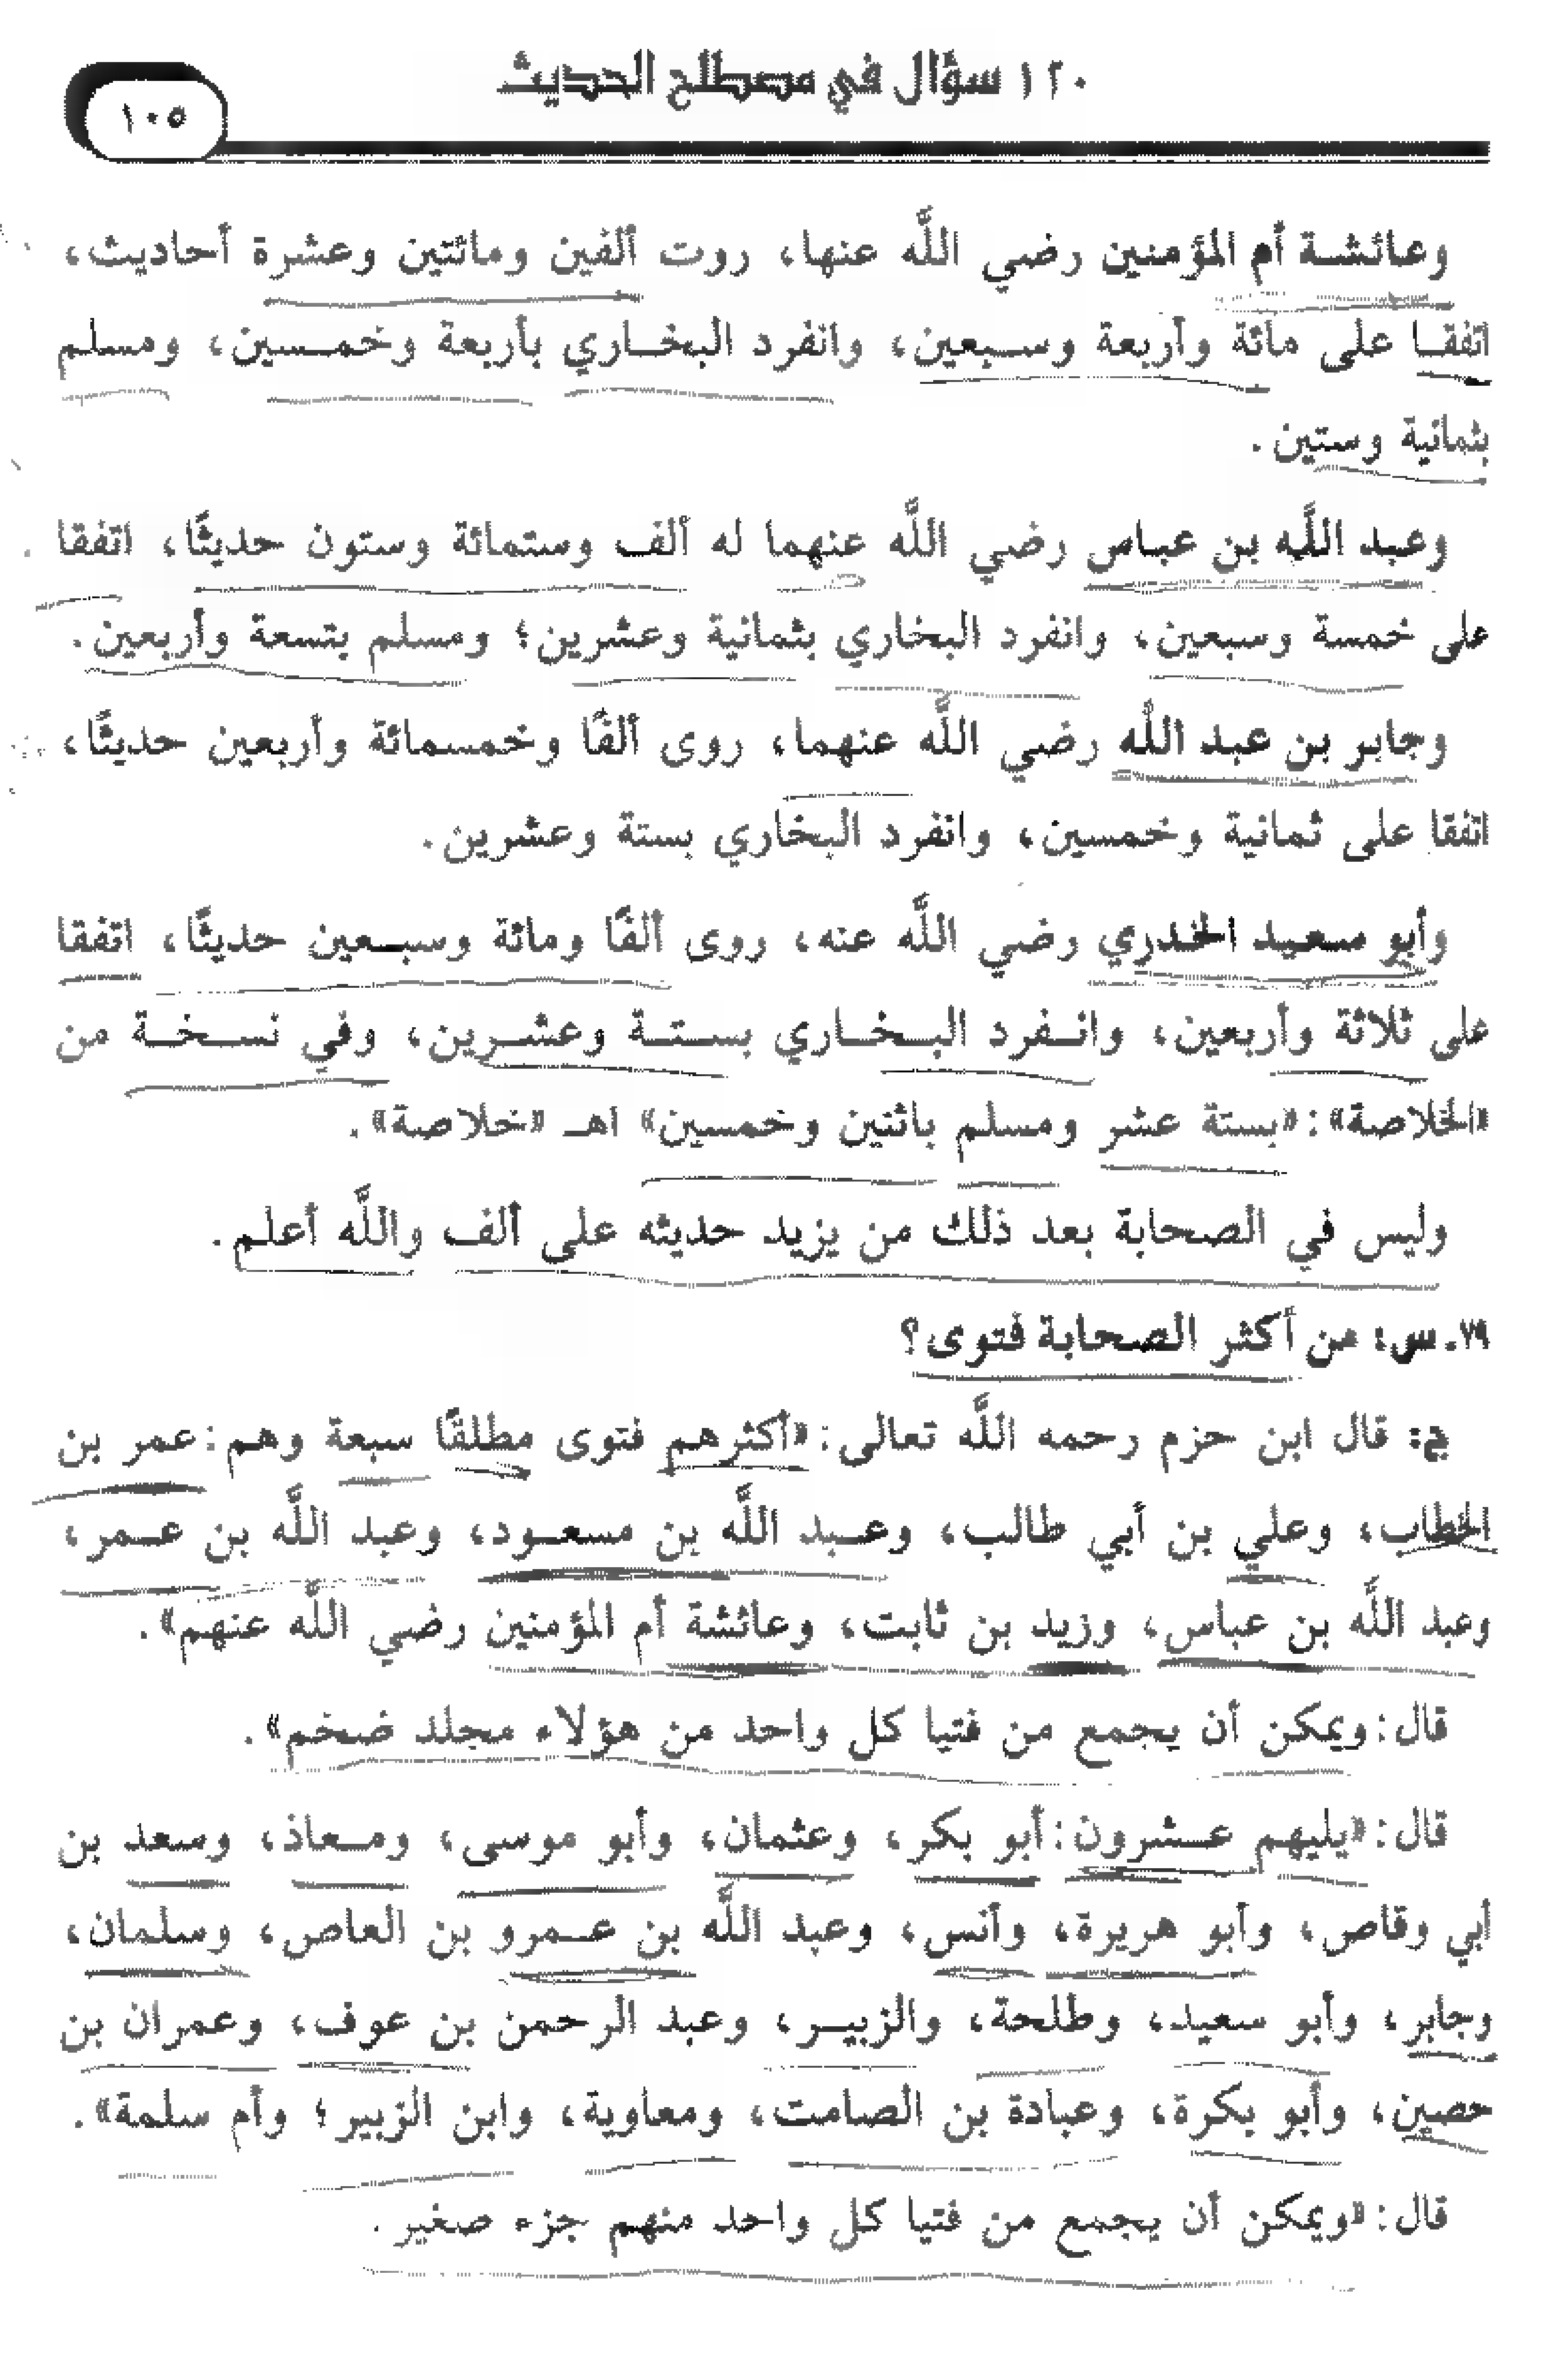 ١٢٠ سؤال في مصطلح الحديث
١٠٥
وعائشة أم المؤمنين رضي اللَّه عنها، روت ألفين ومائتين وعشرة أحاديث،
اتفقا على مائة وأربعة وسبعين، وانفرد البخاري بأربعة وخمسين، ومسلم
بثمانية وستين.
وعبد اللَّه بن عباس رضي اللَّه عنهما له ألف وستمائة وستون حديثًا، اتفقا
على خمسة وسبعين، وانفرد البخاري بثمانية وعشرين؛ ومسلم بتسعة وأربعين.
وجابر بن عبد اللَّه رضي اللَّه عنهما، روى ألفًا وخمسمائة وأربعين حديثًا،
اتفقا على ثمانية وخمسين، وانفرد البخاري بستة وعشرين.
وأبو سعيد الخدري رضي اللَّه عنه، روى ألفًا ومائة وسبعين حديثًا، اتفقا
على ثلاثة وأربعين، وانفرد البخاري بستة وعشرين، وفي نسخة من
«الخلاصة»: «بستة عشر ومسلم باثنين وخمسين» اهـ «خلاصة».
وليس في الصحابة بعد ذلك من يزيد حديثه على ألف واللَّه أعلم.
٧٩. س: من أكثر الصحابة فتوى؟
ج: قال ابن حزم رحمه اللَّه تعالى: «أكثرهم فتوى مطلقًا سبعة وهم: عمر بن
الخطاب، وعلي بن أبي طالب، وعبد اللَّه بن مسعود، وعبد اللَّه بن عمر،
وعبد اللَّه بن عباس، وزيد بن ثابت، وعائشة أم المؤمنين رضي اللَّه عنهم».
قال: ويمكن أن يجمع من فتيا كل واحد من هؤلاء مجلد ضخم».
قال: «يليهم عشرون: أبو بكر، وعثمان، وأبو موسى، ومعاذ، وسعد بن
أبي وقاص، وأبو هريرة، وأنس، وعبد اللَّه بن عمرو بن العاص، وسلمان،
وجابر، وأبو سعيد، وطلحة، والزبير، وعبد الرحمن بن عوف، وعمران بن
حصين، وأبو بكرة، وعبادة بن الصامت، ومعاوية، وابن الزبير؛ وأم سلمة».
قال: «ويمكن أن يجمع من فتيا كل واحد منهم جزء صغير.